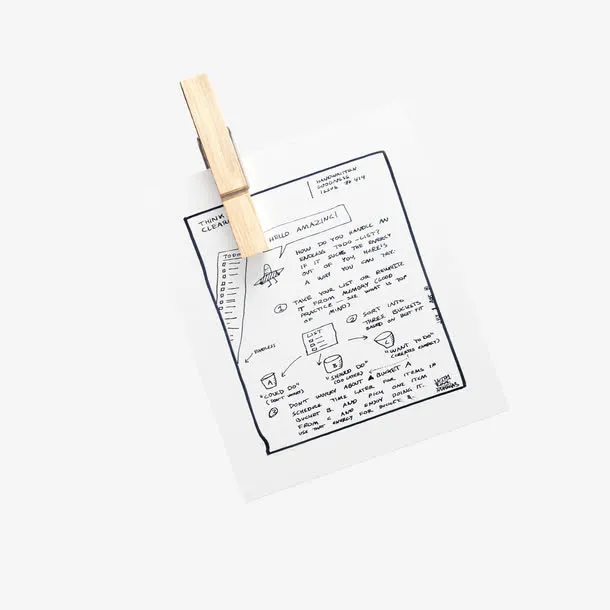 THINK
CLEAR
HANDWRITTEN
GOODNESS
ISSUE №
HELLO AMAZING!
TODO
HOW DO YOU HANDLE AN
ENDLESS TODO-LIST?
IF IT SUCKS THE ENERGY
OUT OF YOU, HERE'S
A WAY YOU CAN TRY.
① TAKE YOUR LIST OR REWRITE
IT FROM MEMORY (GOOD
PRACTICE - SEE WHAT IS TOP
OF MIND)
② SORT INTO
THREE BUCKETS
BASED ON BEST FIT
ENDLESS
LIST
A
B
C
"COULD DO"
(DON'T WORRY)
"SHOULD DO"
(DO LATER)
"WANT TO DO"
(CREATES ENERGY)
③ DON'T WORRY ABOUT BUCKET A
SCHEDULE TIME LATER FOR ITEMS IN
BUCKET B. AND PICK ONE ITEM
FROM C AND ENJOY DOING IT.
USE THAT ENERGY FOR BUCKET B.